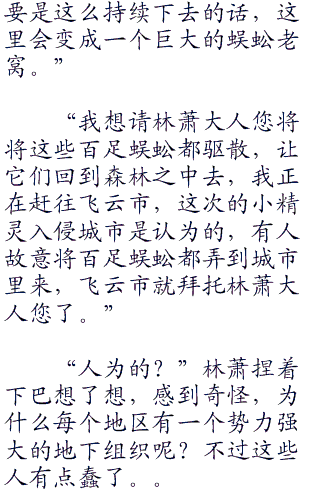 要是这么持续下去的话，这
里会变成一个巨大的蜈蚣老
窝。”
“我想请林萧大人您将
将这些百足蜈蚣都驱散，让
它们回到森林之中去，我正
在赶往飞云市，这次的小精
灵入侵城市是认为的，有人
故意将百足蜈蚣都弄到城市
里来，飞云市就拜托林萧大
人您了。”
“人为的？”林萧捏着
下巴想了想，感到奇怪，为
什么每个地区有一个势力强
大的地下组织呢？不过这些
人有点蠢了。。